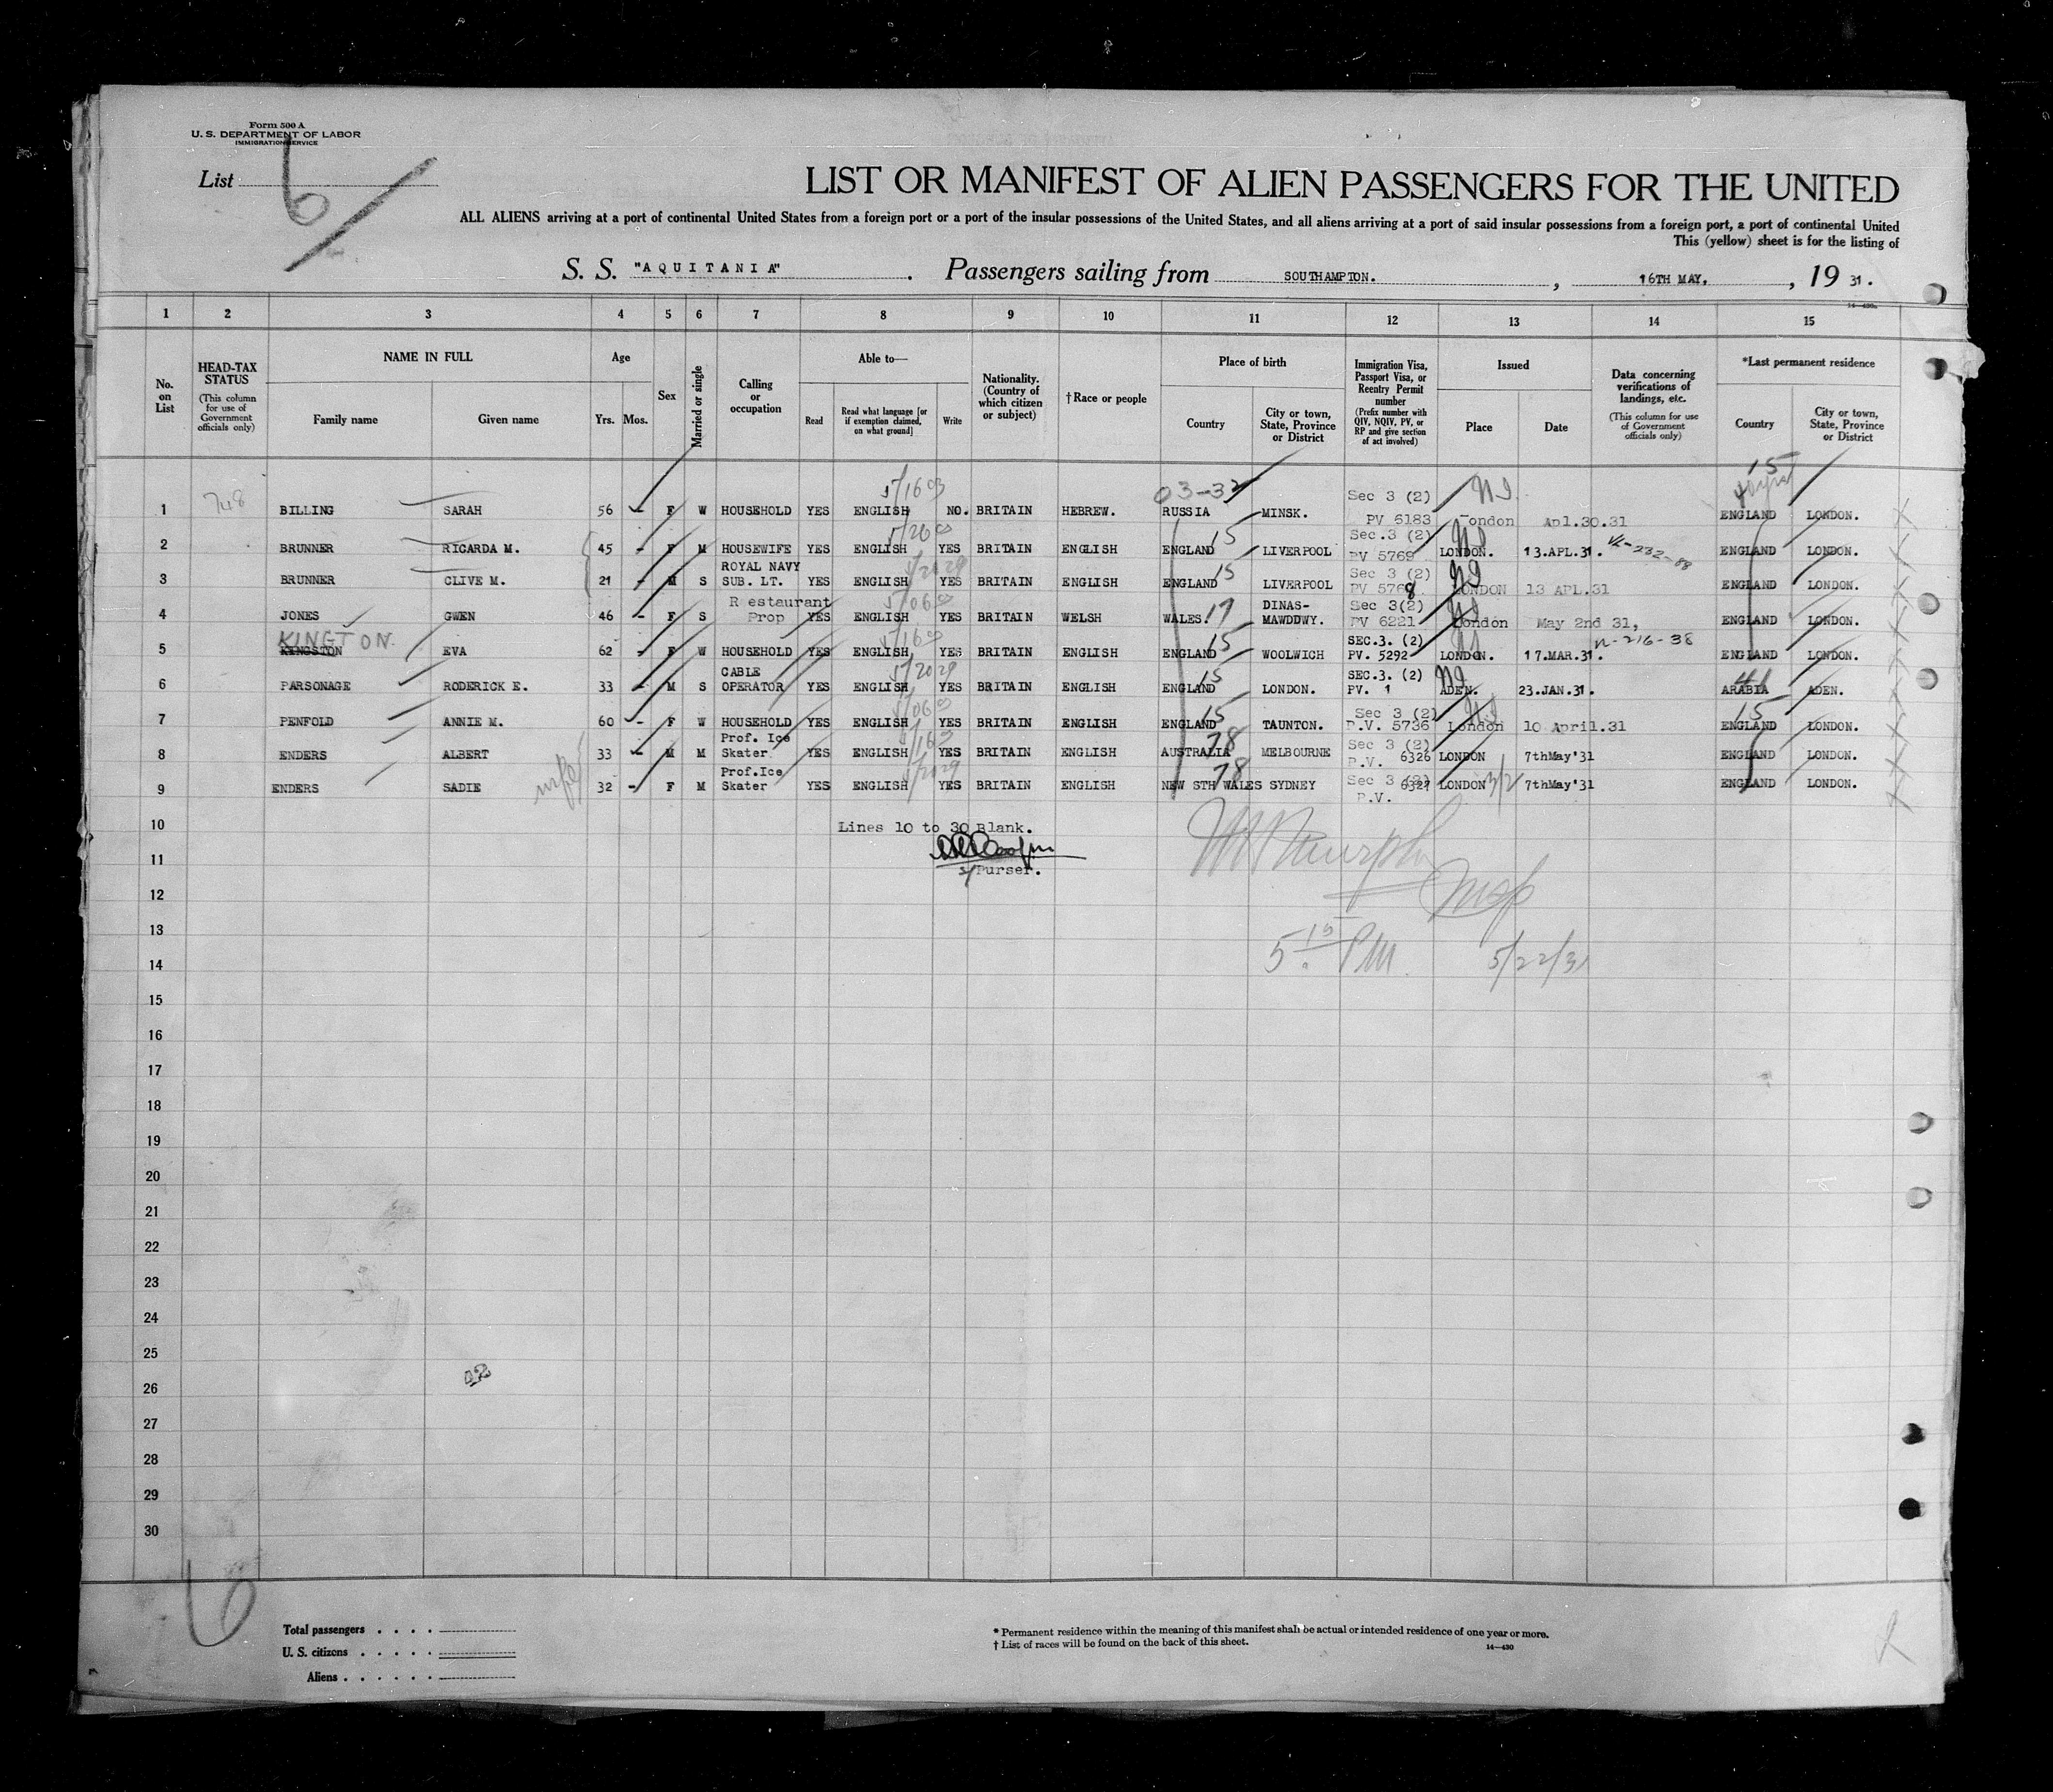 Form 500 A
U. S. DEPARTMENT OF LABOR
IMMIGRATION SERVICE
List 6
LIST OR MANIFEST OF ALIEN PASSENGERS FOR THE UNITED
ALL ALIENS arriving at a port of continental United States from a foreign port or a port of the insular possessions of the United States, and all aliens arriving at a port of said insular possessions from a foreign port, a port of continental United
This (yellow) sheet is for the listing of
S. S. "AQUITANIA" . Passengers sailing from SOUTHAMPTON. , 16TH MAY, , 19 31.
1 2 3 4 5 6 7 8 9 10 11 12 13 14 15
No. on List
HEAD-TAX STATUS (This column for use of Government officials only)
NAME IN FULL
Family name Given name
Age
Yrs. Mos.
Sex
Married or single
Calling or occupation
Able to—
Read Read what language [or if exemption claimed, on what ground] Write
Nationality. (Country of which citizen or subject)
† Race or people
Place of birth
Country City or town, State, Province or District
Immigration Visa, Passport Visa, or Reentry Permit number (Prefix number with QIV, NQIV, PV, or RP and give section of act involved)
Issued
Place Date
Data concerning verifications of landings, etc. (This column for use of Government officials only)
*Last permanent residence
Country City or town, State, Province or District
03-32 15
1 748 BILLING SARAH 56 F W HOUSEHOLD YES ENGLISH NO. BRITAIN HEBREW. RUSSIA MINSK. Sec 3 (2) PV 6183 London Apl.30.31 ENGLAND LONDON.
2 BRUNNER RICARDA M. 45 - F M HOUSEWIFE YES ENGLISH YES BRITAIN ENGLISH ENGLAND 15 LIVERPOOL Sec.3 (2) PV 5769 LONDON. 13.APL.31. ENGLAND LONDON.
3 BRUNNER CLIVE M. 21 - M S ROYAL NAVY SUB. LT. YES ENGLISH YES BRITAIN ENGLISH ENGLAND 15 LIVERPOOL Sec 3 (2) PV 5768 LONDON 13 APL.31 ENGLAND LONDON.
4 JONES GWEN 46 - F S Restaurant Prop YES ENGLISH YES BRITAIN WELSH WALES. 17 DINAS-MAWDDWY. Sec 3(2) PV 6221 London May 2nd 31, ENGLAND LONDON.
KINGTON
5 KINGSTON EVA 62 - F W HOUSEHOLD YES ENGLISH YES BRITAIN ENGLISH ENGLAND 15 WOOLWICH SEC.3. (2) PV. 5292 LONDON. 17.MAR.31. ENGLAND LONDON.
6 PARSONAGE RODERICK E. 33 - M S CABLE OPERATOR YES ENGLISH YES BRITAIN ENGLISH ENGLAND 15 LONDON. SEC.3. (2) PV. 1 ADEN. 23.JAN.31. ARABIA ADEN.
7 PENFOLD ANNIE M. 60 - F W HOUSEHOLD YES ENGLISH YES BRITAIN ENGLISH ENGLAND 15 TAUNTON. Sec 3 (2) P.V. 5736 London 10 April.31 15 ENGLAND LONDON.
8 ENDERS ALBERT 33 M M Prof. Ice Skater YES ENGLISH YES BRITAIN ENGLISH AUSTRALIA 78 MELBOURNE Sec 3 (2) P.V. 6326 LONDON 7thMay'31 ENGLAND LONDON.
9 ENDERS SADIE wife 32 - F M Prof.Ice Skater YES ENGLISH YES BRITAIN ENGLISH NEW STH WALES 78 SYDNEY Sec 3 (2) P.V. 6327 LONDON 3/2 7thMay'31 ENGLAND LONDON.
10 Lines 10 to 30 Blank.
11 Purser.
12
13
14 5 15 PM. 5/22/31
15
16
17
18
19
20
21
22
23
24
25
42
26
27
28
29
30
6
Total passengers . . . .
U. S. citizens . . . . .
Aliens . . . . . .
* Permanent residence within the meaning of this manifest shall be actual or intended residence of one year or more.
† List of races will be found on the back of this sheet.
14—430